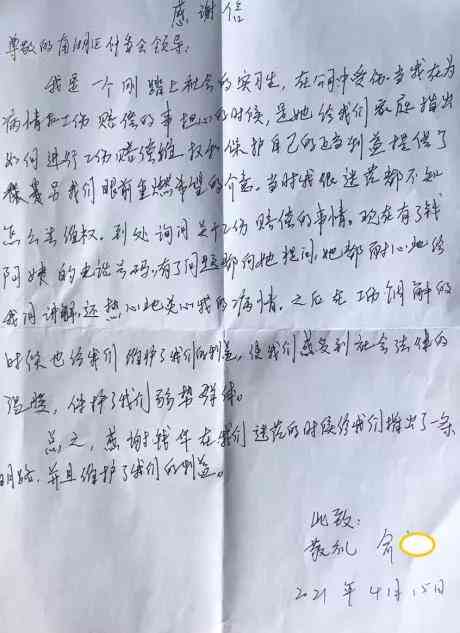 感谢信
尊敬的南湖区行委会领导:
我是一个刚踏上社会的实习生,在公司中受伤。当我在为
病情和工伤赔偿的事担心的时候,是她给我们家庭指出
如何进行工伤赔偿维权和保护自己的正当利益提供了
另我们眼前重燃希望的介意。当时我很迷茫都不知
怎么去维权。到处询问关于工伤赔偿的事情。现在有了钱
阿姨的电话号码,有了问题都向她提问,她都耐心地给
我们讲解,还热心地关心我的病情。之后在工伤调解的
时候也给我们维护了我们的利益,使我们感受到社会法律的
温暖,保护了我们弱势群体。
总之,感谢钱年在我们迷茫的时候给我们指出了一条
明路,并且维护了我们的利益。
此致:
敬礼 俞
2021年4月15日